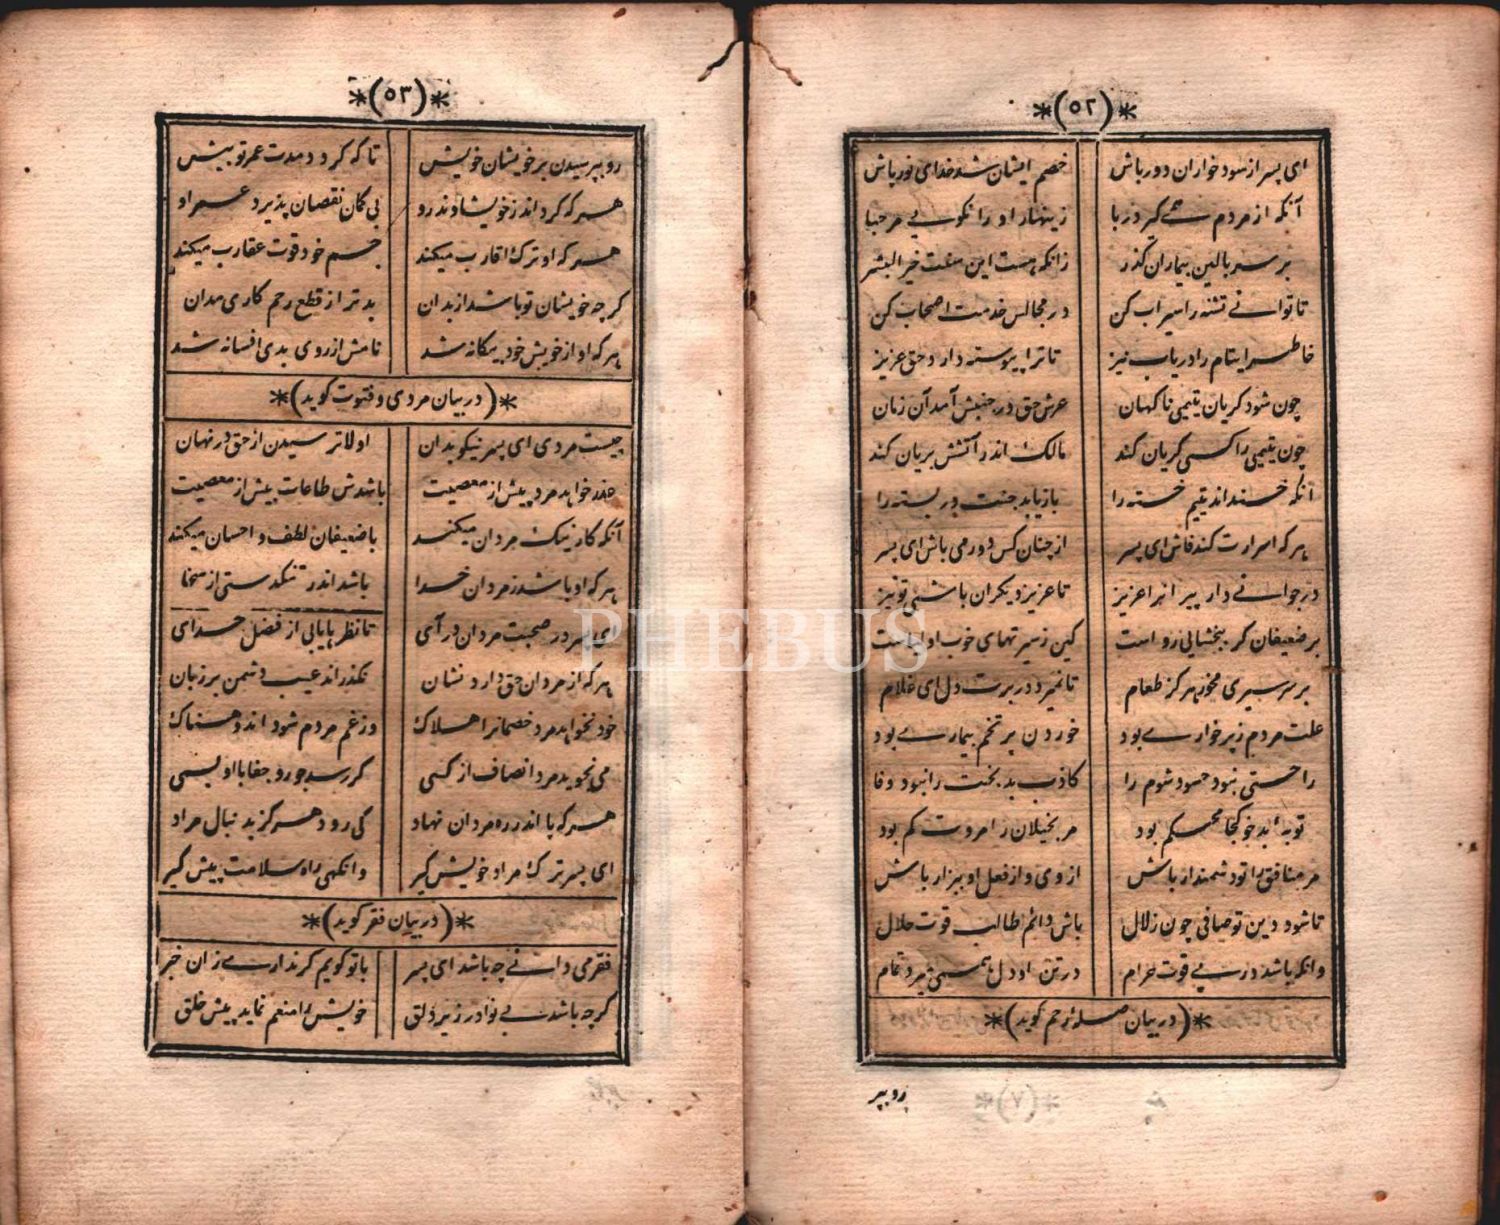 *(٥٢)*
ای پسر از سود خواران دور باش خصم ایشان شد خدای نور پاش
آنکه از مردم همی کیرد ربا زینهار او را نکویی مرحبا
بر سر بالین بیماران کذر زانکه هست این سنت خیر البشر
تا توانی تشنه را سیراب کن در مجالس خدمت اصحاب کن
خاطر ایتام را دریاب نیز تا ترا پیوسته دارد حق عزیز
چون شود کریان یتیمی ناکهان عرش حق در جنبش آمد آن زمان
چون یتیمی را کسی کریان کند مالک اندر آتشش بریان کند
آنکه خنداند یتیم خسته را باز یابد جنت در بسته را
هر که اسرارت کند فاش ای پسر از چنان کس دور می باش ای پسر
در جوانی دار پیرانرا عزیز تا عزیز دیکران باشی تو نیز
بر ضعیفان کر ببخشایی رواست کین ز سیرتهای خوب اولیاست
بر سر سیری مخور هرکز طعام تا نمیرد در برت دل ای غلام
علت مردم ز پر خواری بود خوردن پر تخم بیماری بود
راحتی نبود حسود شوم را کاذب بدبخت را نبود وفا
توبه بد خو کجا محکم بود مر بخیلان را مروت کم بود
مر منافق را تو دشمن دار باش از وی و از فعل او بیزار باش
تا شود دین تو صافی چون زلال باش دائم طالب قوت حلال
وانکه باشد در پی قوت حرام در تن او دل همی میرد تمام
*(در بیان صله رحم کوید)*
رو بپر
*(٥٣)*
رو بپرسیدن بر خویشان خویش تا که کردد مدت عمر تو بیش
هر که کرداند ز خویشاوند رو بی کمان نقصان پذیرد عمر او
هر که او ترک اقارب میکند جسم خود قوت عقارب میکند
کرچه خویشان تو باشد از بدان بدتر از قطع رحم کاری مدان
هر که او از خویش خود بیکانه شد نامش از روی بدی افسانه شد
*(در بیان مردی و فتوت کوید)*
چیست مردی ای پسر نیکو بدان اولا ترسیدن از حق در نهان
عذر خواهد مرد پیش از معصیت باشدش طاعات بیش از معصیت
آنکه کار نیک مردان میکند با ضعیفان لطف و احسان میکند
هر که او باشد ز مردان خدا باشد اندر تنکدستی از سخا
ای پسر در صحبت مردان در آی تا نظر ها یابی از فضل خدای
هر که از مردان حق دارد نشان نکذراند عیب دشمن بر زبان
خود نخواهد مرد خصمانرا هلاک وز غم مردم شود اندوهناک
می نجوید مرد انصاف از کسی کر رسد جور و جفا با او بسی
هر که پا اندر ره مردان نهاد کی رود هرکز بدنبال مراد
ای پسر ترک مراد خویش کیر وانکهی راه سلامت پیش کیر
*(در بیان فقر کوید)*
فقر می دانی چه باشد ای پسر با تو کویم کر نداری زان خبر
کرچه باشد بی نوا در زیر دلق خویش را منعم نماید پیش خلق
PHEBUS